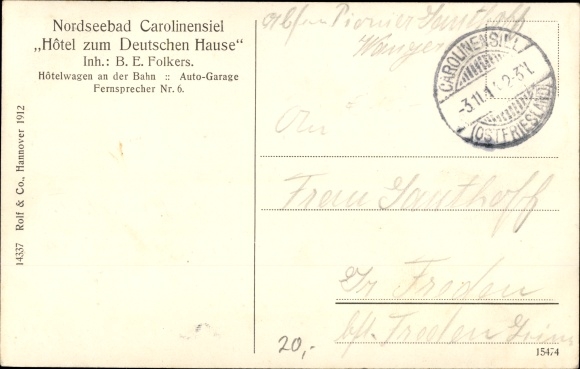 Nordseebad Carolinensiel
„Hôtel zum Deutschen Hause“
Inh.: B. E. Folkers.
Hôtelwagen an der Bahn :: Auto-Garage
Fernsprecher Nr. 6.
14337 Rolf & Co., Hannover 1912
Pionier Santhoff
CAROLINENSIEL
(OSTFRIESLAND)
An
Frau Santhoff
Gr Freden
Freden
20,-
15474